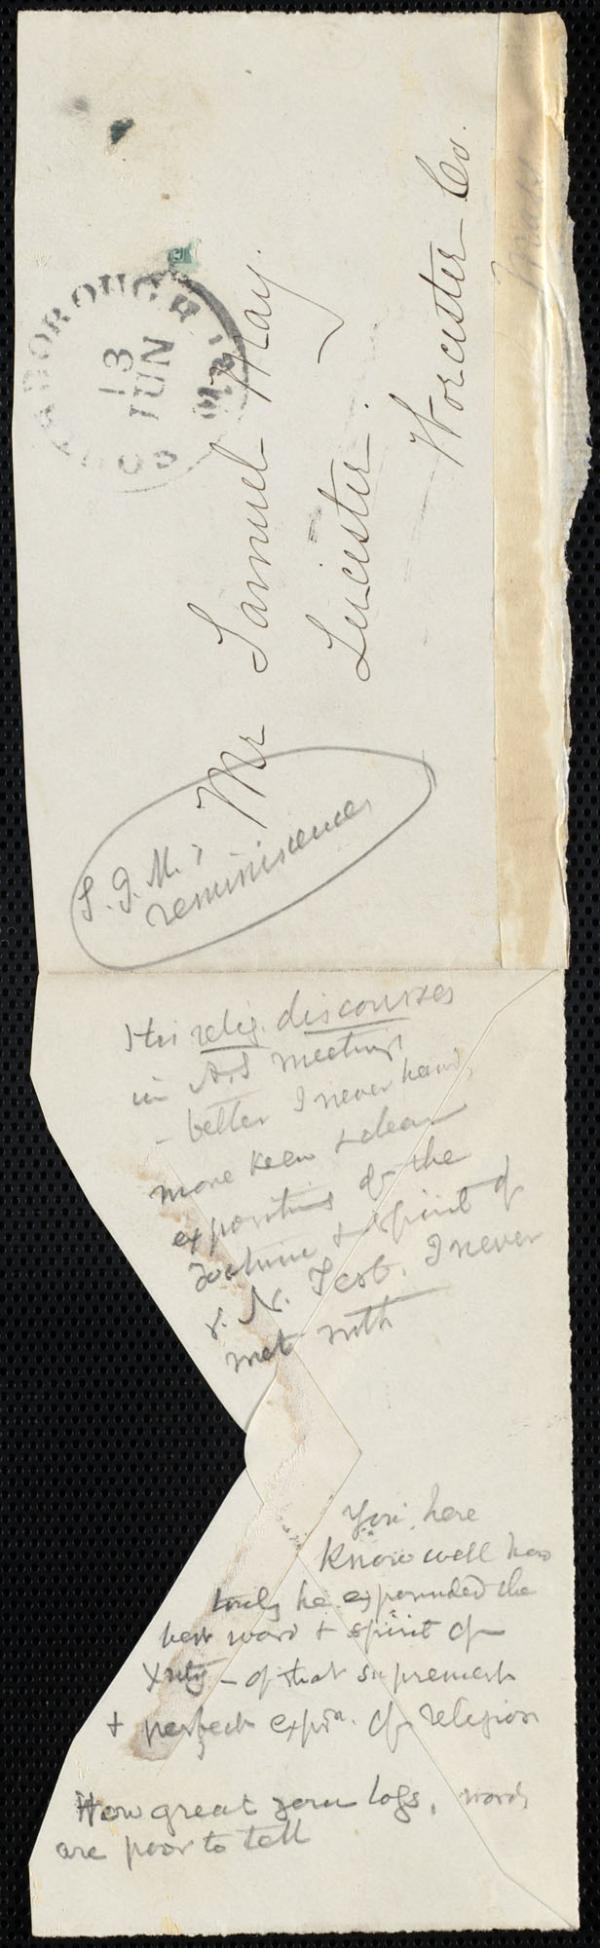 SOUTHBOROUGH MS.
13
JUN
Mr Samuel May.
Leicester.
Worcester Co.
Mass
S. J. M.'s
reminiscences
His relig. discourses
in A.S meetings
- better I never heard,
more keen & clear
expositions of the
doctrine & spirit of
N. Test. I never
met with
You, here
know well how
truly he expounded the
best word & spirit of
Xnty - of that supremest
& perfect expon. of religion
How great your loss, words
are poor to tell